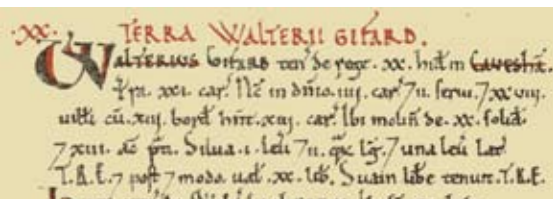 .XX. TERRA WALTERII GIFARD.
WALTERIUS Gifard ten' de rege. xx. hid' in Caveshā.
Tr̄a. xxi. car'. N̄c in dn̄io. iiii. car' 7 ii. servi. 7 xxviii.
uilli cū. xiii. bord' hn̄t. xiii. car'. Ibi molin' de. xx. solid'.
7 xiii. ac̄ p̄ti. Silua. i. leū 7 ii. q̄z lḡ. 7 una leū lat'.
T.R.E. 7 post 7 modo. ual'. xx. lib'. Suain libe tenuit. T.R.E.